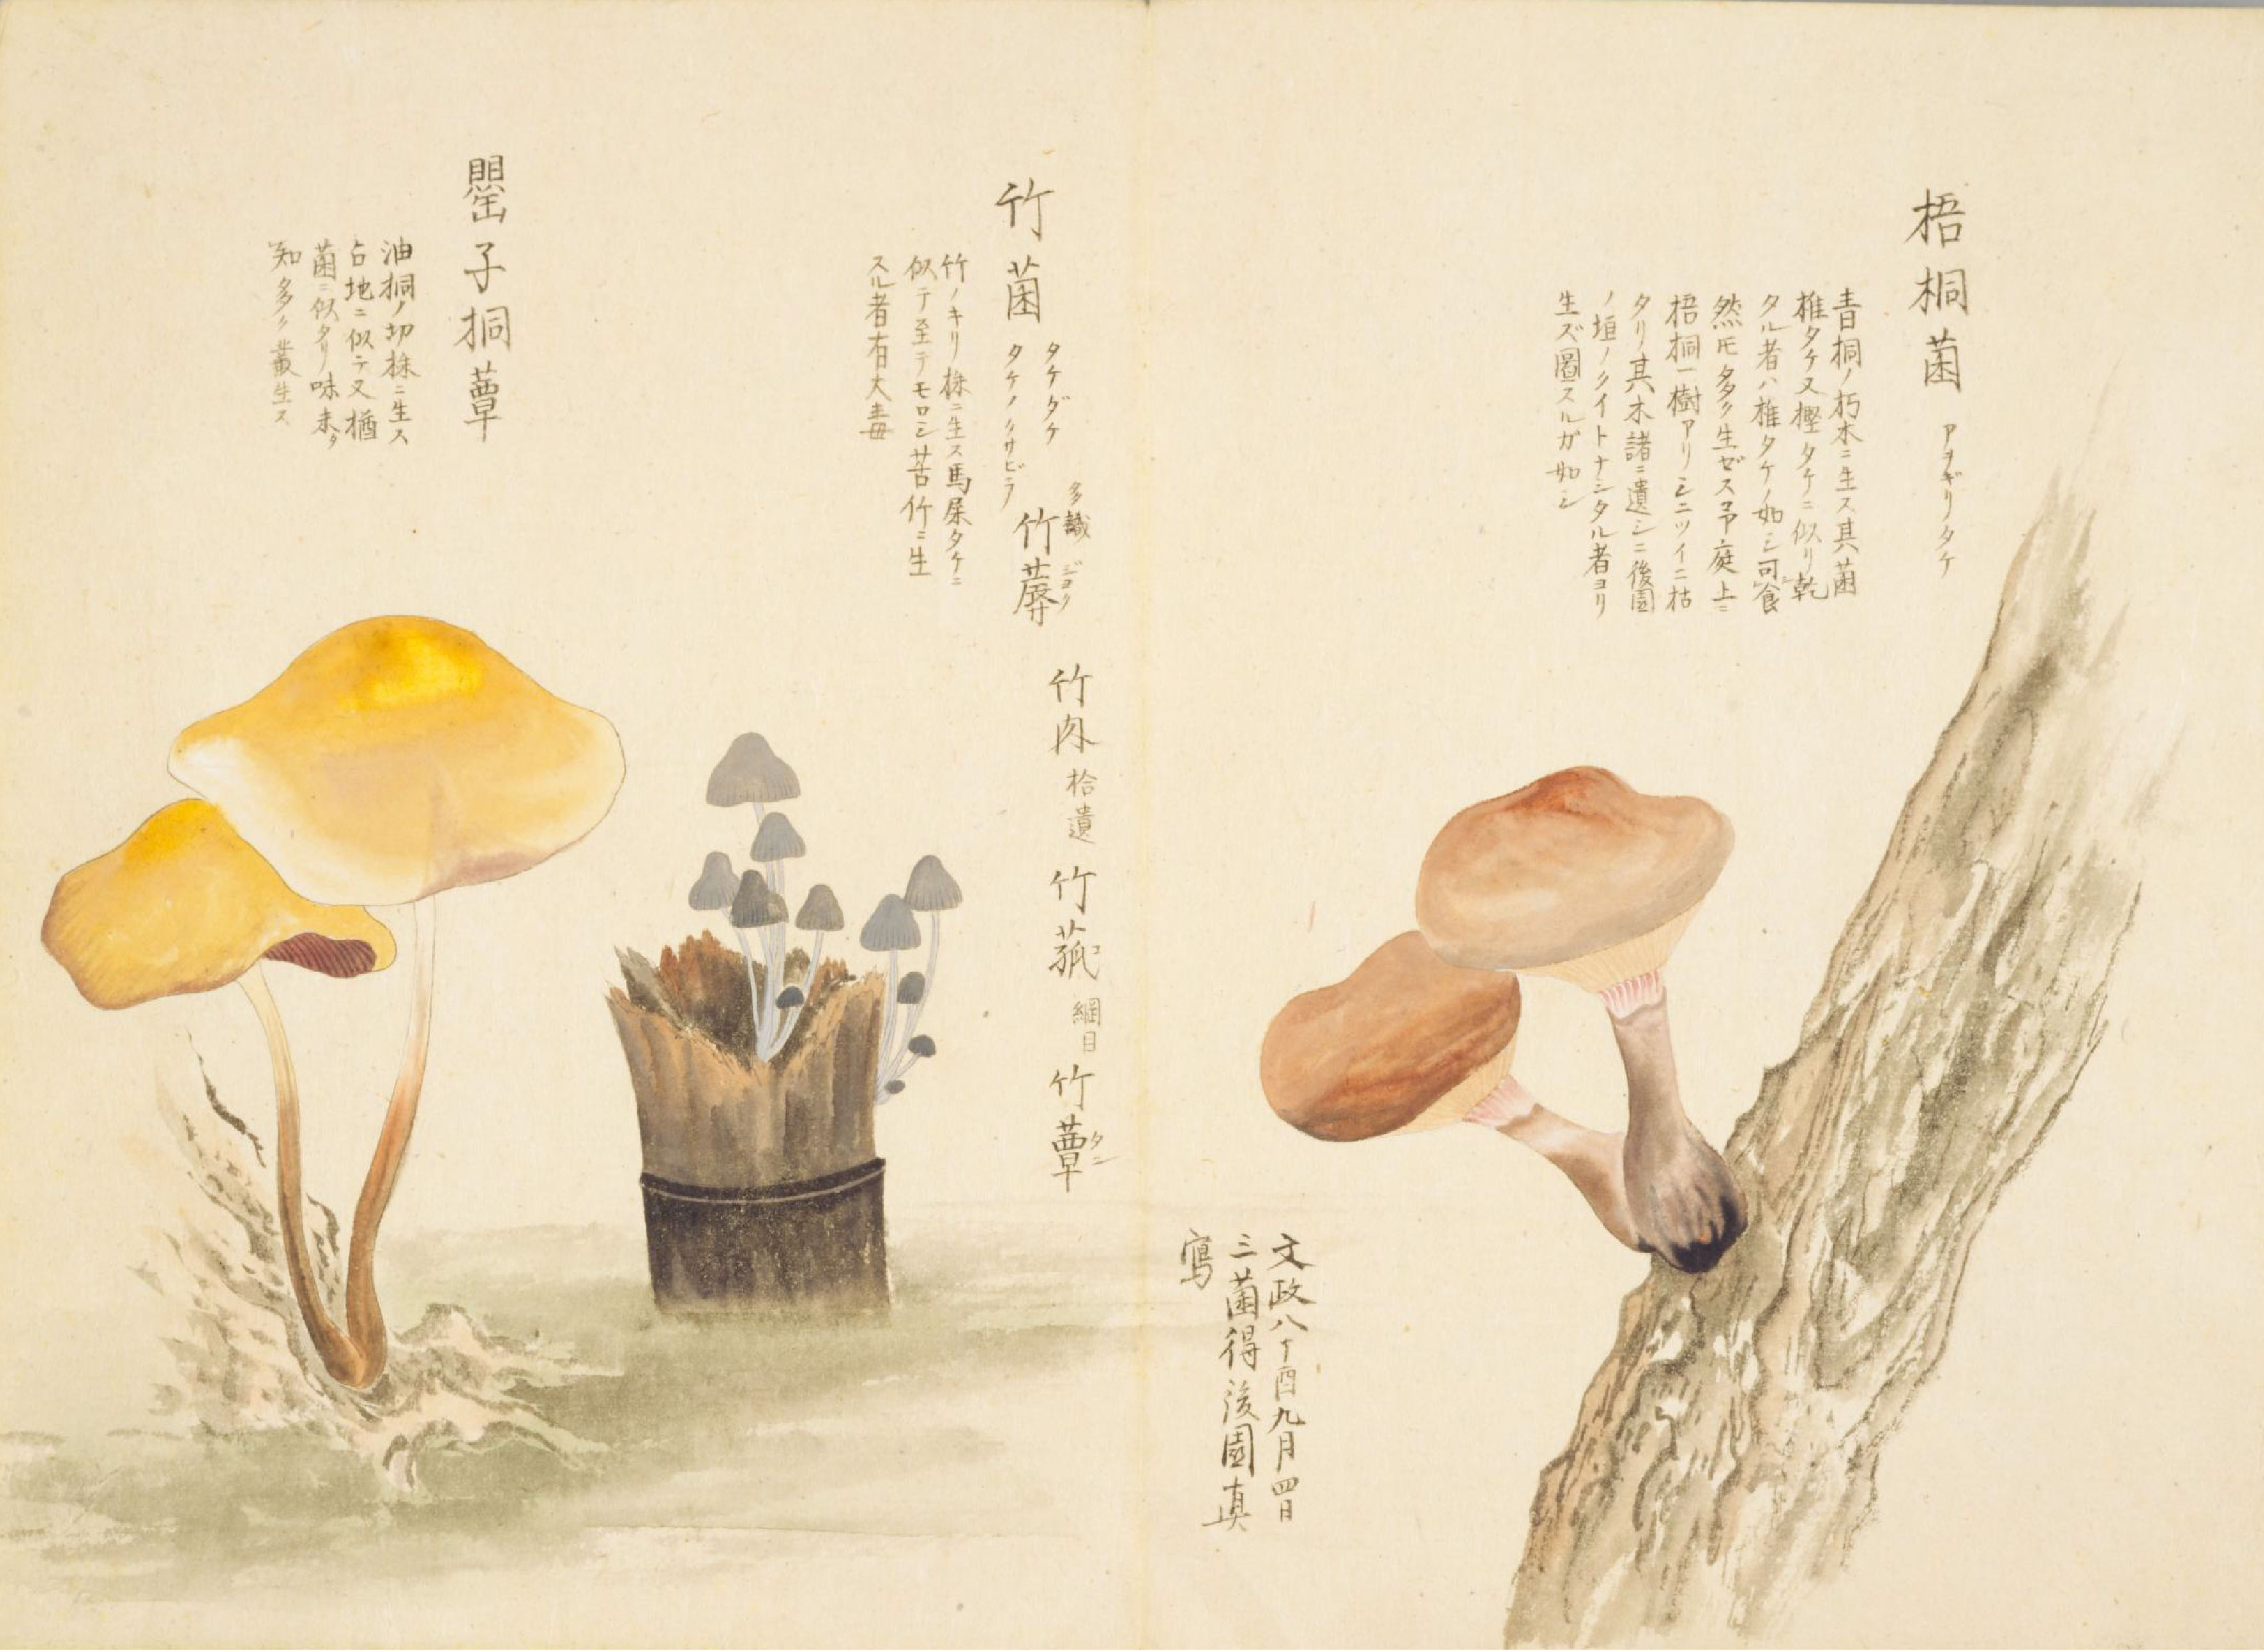 梧桐菌 アヲギリタケ
青桐ノ朽木ニ生ス其菌
椎タケ又樫タケニ似リ乾
タル者ハ椎タケノ如シ可食
然モ多ク生ゼス予庭上ニ
梧桐一樹アリシニツイニ枯
タリ其木諸ニ遺シニ後園
ノ垣ノクイトナシタル者ヨリ
生ズ圖スルガ如シ
文政八丁酉九月四日
三菌得後園真
寫
竹菌 タケダケ タケノクサビラ
多識 竹蓐 ジヨク
竹肉 拾遺 竹菰 コ 綱目 竹蕈 タニ
竹ノキリ株ニ生ス馬屎タケニ
似テ至テモロシ苦竹ニ生
スル者有大毒
罌子桐蕈
油桐ノ切株ニ生ス
占地ニ似テ又楢
菌ニ似タリ味未タ
知多ク叢生ス